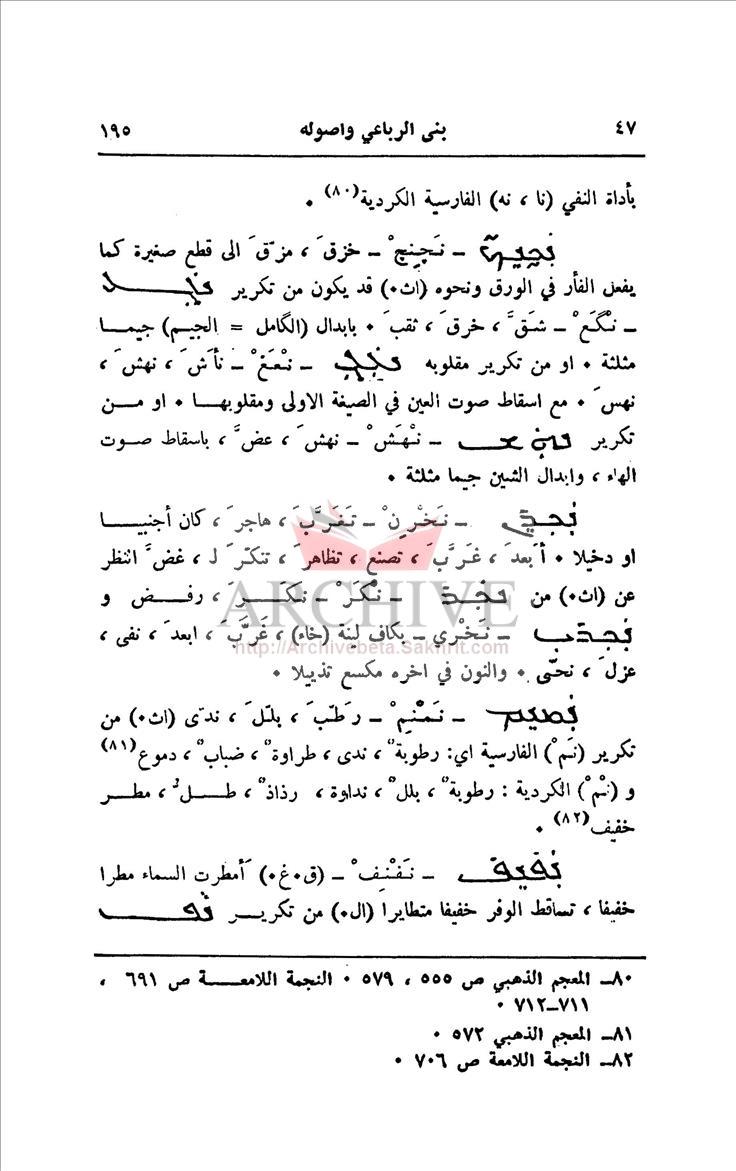 ٤٧ بنى الرباعي واصوله ١٩٥
بأداة النفي (نا ، نه) الفارسية الكردية(٨٠) ٠
ــ خزقَ ، مزّقَ الى قطع صغيرة كما
يفعل الفأر في الورق ونحوه (اث٠) قد يكون من تكرير
ــ شقَّ ، خرقَ ، ثقبَ ٠ بابدال (الگامل = الجيم) جيمـا
مثلثة ٠ او من تكرير مقلوبه ــ نأشَ ، نهشَ ،
نهسَ ٠ مع اسقاط صوت العين في الصيغة الاولى ومقلوبهـا ٠ او مــن
تكرير ــ نْهَشْ ــ نهشَ ، عضَّ ، باسقاط صــوت
الهاء ، وابدال الشين جيما مثلثة ٠
ــ نَخْرِنْ ــ تَغَرَّبَ ، هاجرَ ، كان أجنبيــا
او دخيلا ٠ أبعدَ ، غَرَّبَ ، تصنع ، تظاهرَ ، تنكّرَ لـ ، غضَّ النظر
عن (اث٠) من ــ نْكَرْ ــ نكــرَ ، رفــض و
ــ نَخْرِي ــ بكاف لينة (خاء) ، غَرَّبَ ، ابعدَ ، نفى ،
عزلَ ، نحّى ٠ والنون في اخره مكسع تذييلا ٠
ــ نَمْنِمْ ــ رطّبَ ، بللَ ، ندّى (اث٠) من
تكرير (نَمْ) الفارسية اي: رطوبةٌ ، ندى ، طراوةٌ ، ضبابٌ ، دموع(٨١)
و (نْمْ) الكردية : رطوبةٌ ، بللٌ ، نداوة ، رذاذٌ ، طــلٌ ، مطــر
خفيف(٨٢) ٠
ــ نَفْنِفْ ــ (ق٠غ٠) أمطرت السماء مطرا
خفيفا ، تساقط الوفر خفيفا متطايرا (ال٠) من تكريــر
٨٠ــ المعجم الذهبي ص ٥٥٥ ، ٥٧٩ ٠ النجمة اللامعــة ص ٦٩١ ،
٧١١ــ٧١٢ ٠
٨١ــ المعجم الذهبي ٥٧٢ ٠
٨٢ــ النجمة اللامعة ص ٧٠٦ ٠
ARCHIVE
http://Archivebeta.Sakhrit.com